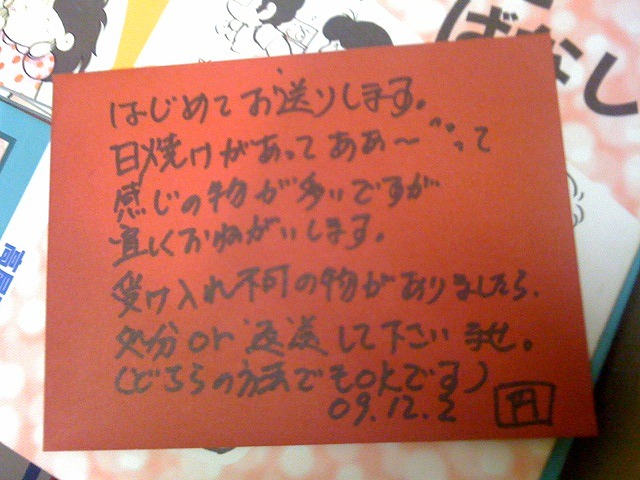 ばなし
はじめてお送りします。
日焼けがあってああ〜"って
感じの物が多いですが
宜しくおねがいします。
受け入れ不可の物がありましたら、
処分or返送して下さいませ。
(どちらの方法でもOKです)
09.12.2 円